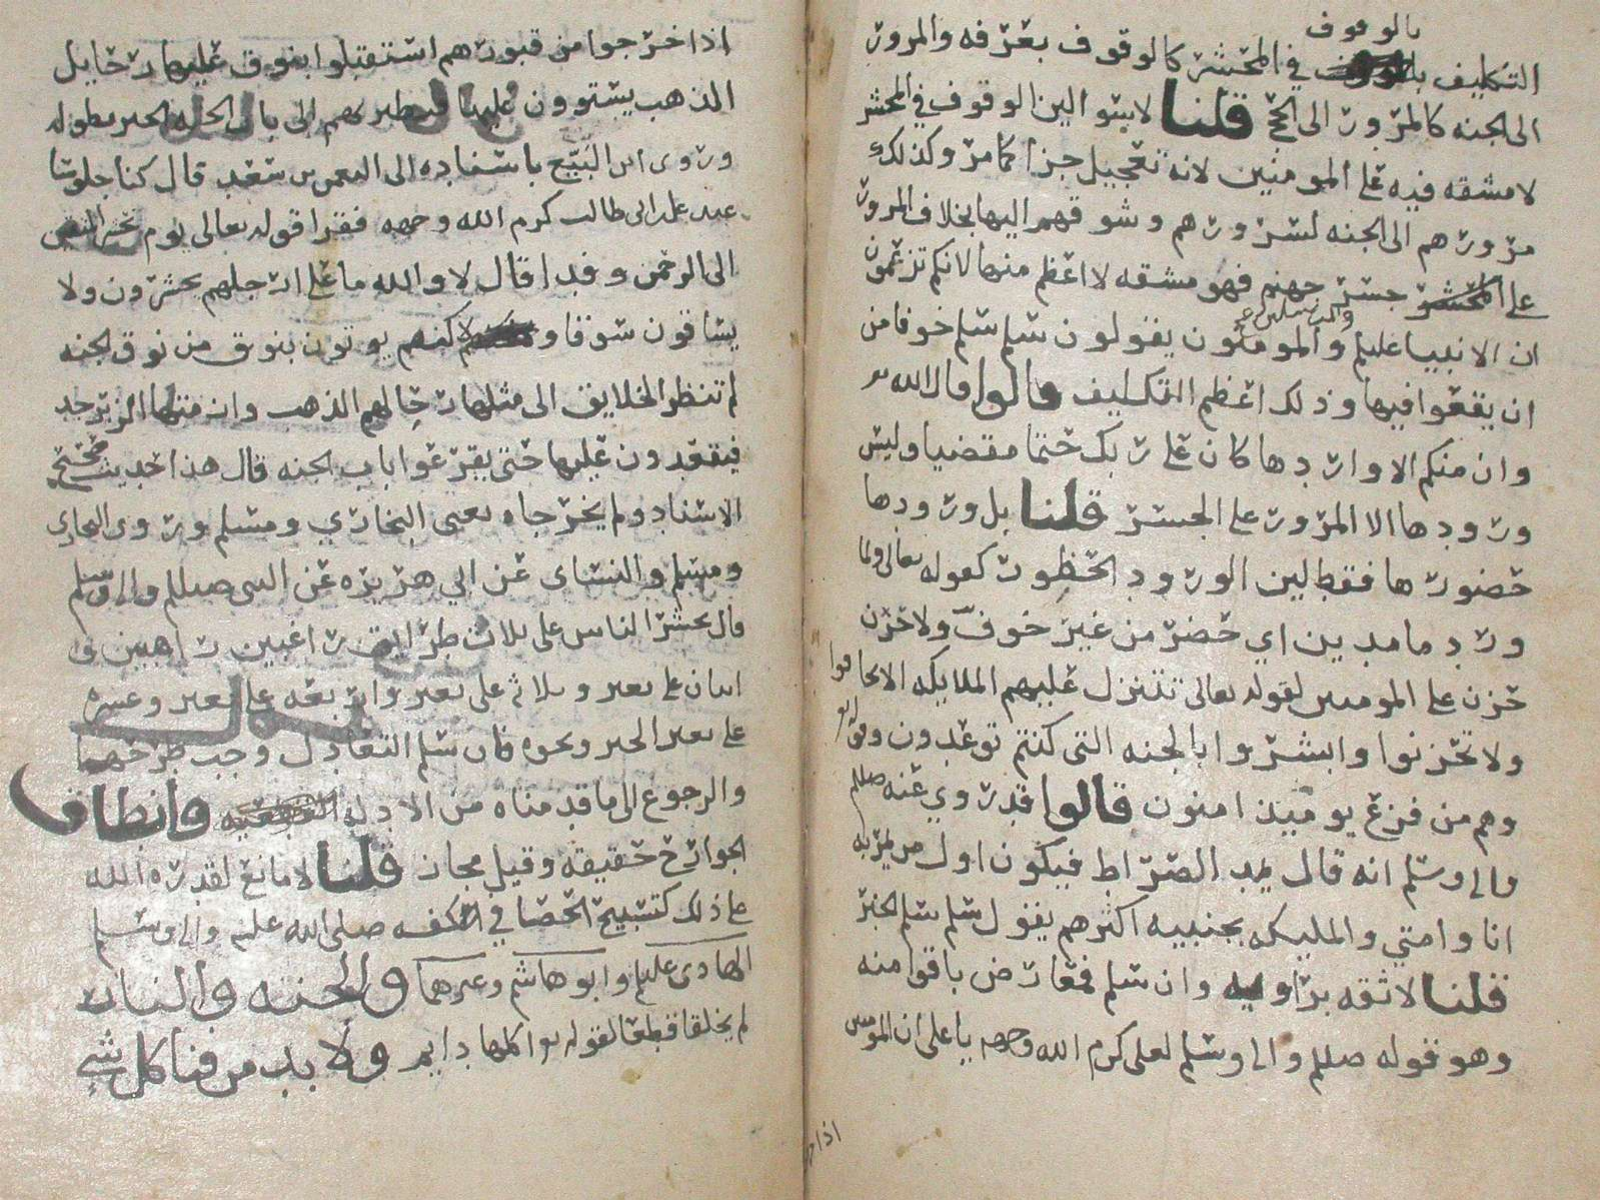 بالوقوف
التكليف في المحشر كالوقوف بعرفه والمرور
الى الجنه كالمرور الى الحج قلنا لا يتوالين الوقوف في المحشر
لا مشقه فيه على المومنين لانه تعجيل جزا كما مر وكذلك
مرورهم الى الجنه لسرورهم وشوقهم اليها بخلاف المرور
على جسر جهنم فهو مشقه لا اعظم منها لانكم تزعمون
ان الانبيا عليلم والمومنون يقولون سلم سلم خوفا من
ان يقعوا فيها وذلك اعظم التكليف قالوا قال الله تع
وان منكم الا واردها كان على ربك حتما مقضيا وليس
ورودها الا المرور على الجسر قلنا بل ورودها
حضورها فقط لين الورود الحظور كقوله تعالى ولما
ورد ما مدين اي حضر من غير خوف ولا حزن
حزن على المومنين لقوله تعالى تتنزل عليهم الملايكه الا تخافوا
ولا تحزنوا وابشروا بالجنه التي كنتم توعدون وقوله تع
وهم من فزع يوميذ امنون قالوا قد روي عنه صللم
والى وسلم انه قال يمد الصراط فيكون اول من يمر به
انا وامتي والمليكه بجنبيه اكثرهم يقول سلم سلم الخبر
قلنا لا ثقه براويه وان سلم فمعارض باقوا منه
وهو قوله صللم والى وسلم لعلي كرم الله وجهه يا علي ان المومنين
اذا خرجوا من قبورهم استقبلوا بنوق عليها رحايل
الذهب يستوون عليها فتطير بهم الى باب الجنه الخبر بطوله
وروى ابن البيع باسناده الى النعمن بن سعد قال كنا جلوسا
عند علي بن ابى طالب كرم الله وجهه فقرا قوله تعالى يوم نحشر المتقين
الى الرحمن وفدا قال لا والله ما على ارجلهم يحشرون ولا
يساقون سوقا ولاكنهم يوتون بنوق من نوق الجنه
لم تنظر الخلايق الى مثلها رحالهم الذهب وازمتها الزبرجد
فيقعدون عليها حتى يقرعوا باب الجنه قال هذا حديث صحيح
الاسناد ولم يخرجاه يعنى البخاري ومسلم وروى البخاري
ومسلم والنساى عن ابي هريره عن النبي صللم والى وسلم
قال يحشر الناس على ثلاث طرايق راغبين راهبين و
اثنان على بعير وثلاثه على بعير واربعه على بعير وعشره
على بعير الخبر ونحوه قان سلم التعادل وجب طرحهما
والرجوع الى ما قدمناه من الادله وانطاف
الجوارح حقيقه وقيل مجاز قلنا لا مانع لقدره الله
على ذلك كتسبيح الحصا في كفه صلى الله عليه والى وسلم
الهادى عليلم وابو هاشم وغيرهما والجنه والنار
لم يخلقا قطعا لقوله تع اكلها دايم ولا بد من فنا كل شي